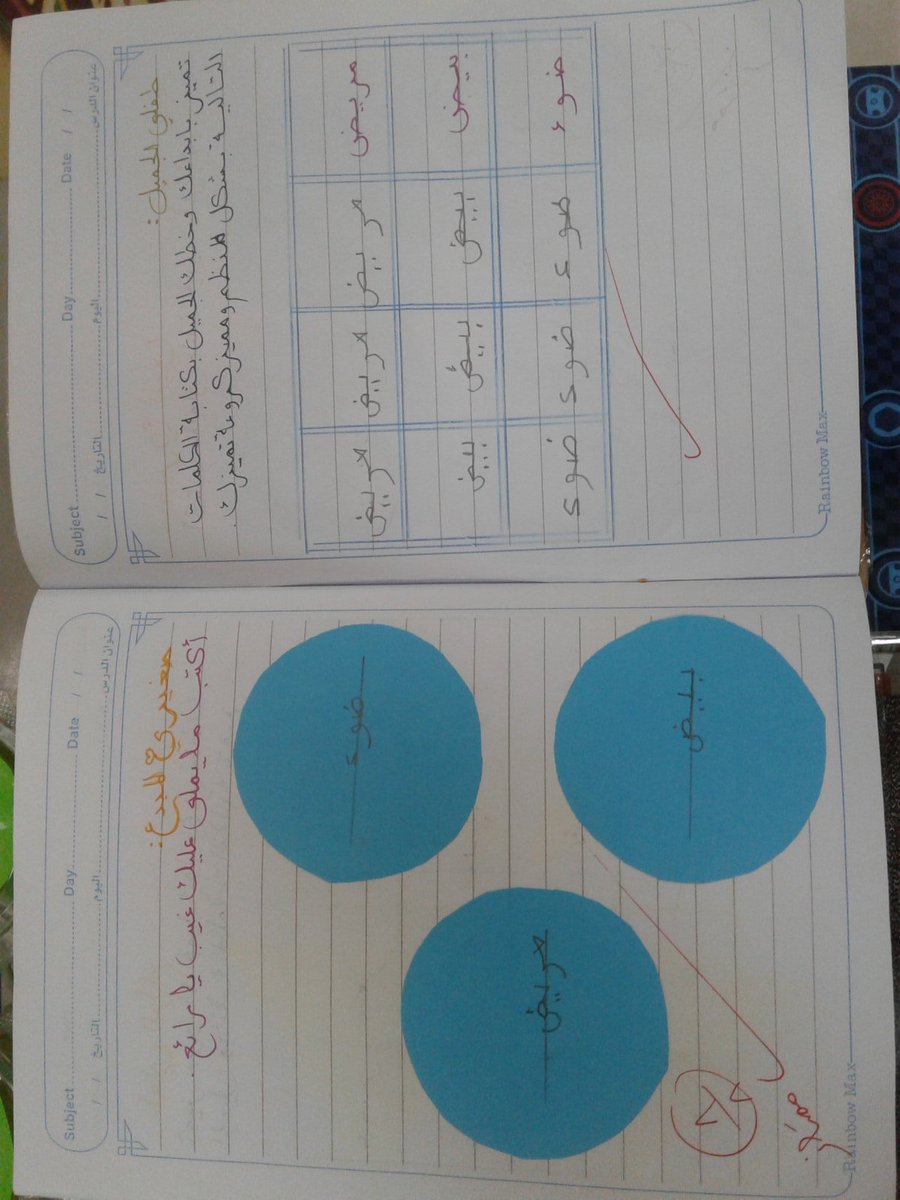 Subject ............ Day ............ Date / /
عنوان الدرس ............ اليوم ............ التاريخ / /
طفلي الجميل :
تميز بإبداعك وخطك الجميل بكتابة الكلمات
التالية بشكل المنظم ومميز كروعة تميزك .
مريض مريض مريض مريض
بيض بيض بيض بيض
ضوء ضوء ضوء ضوء
Rainbow Max
Subject ............ Day ............ Date / /
عنوان الدرس ............ اليوم ............ التاريخ / /
صغيري المبدع :
أكتب ما يملى عليك غيب يا رائع .
ضوء
بيض
مريض
Rainbow Max